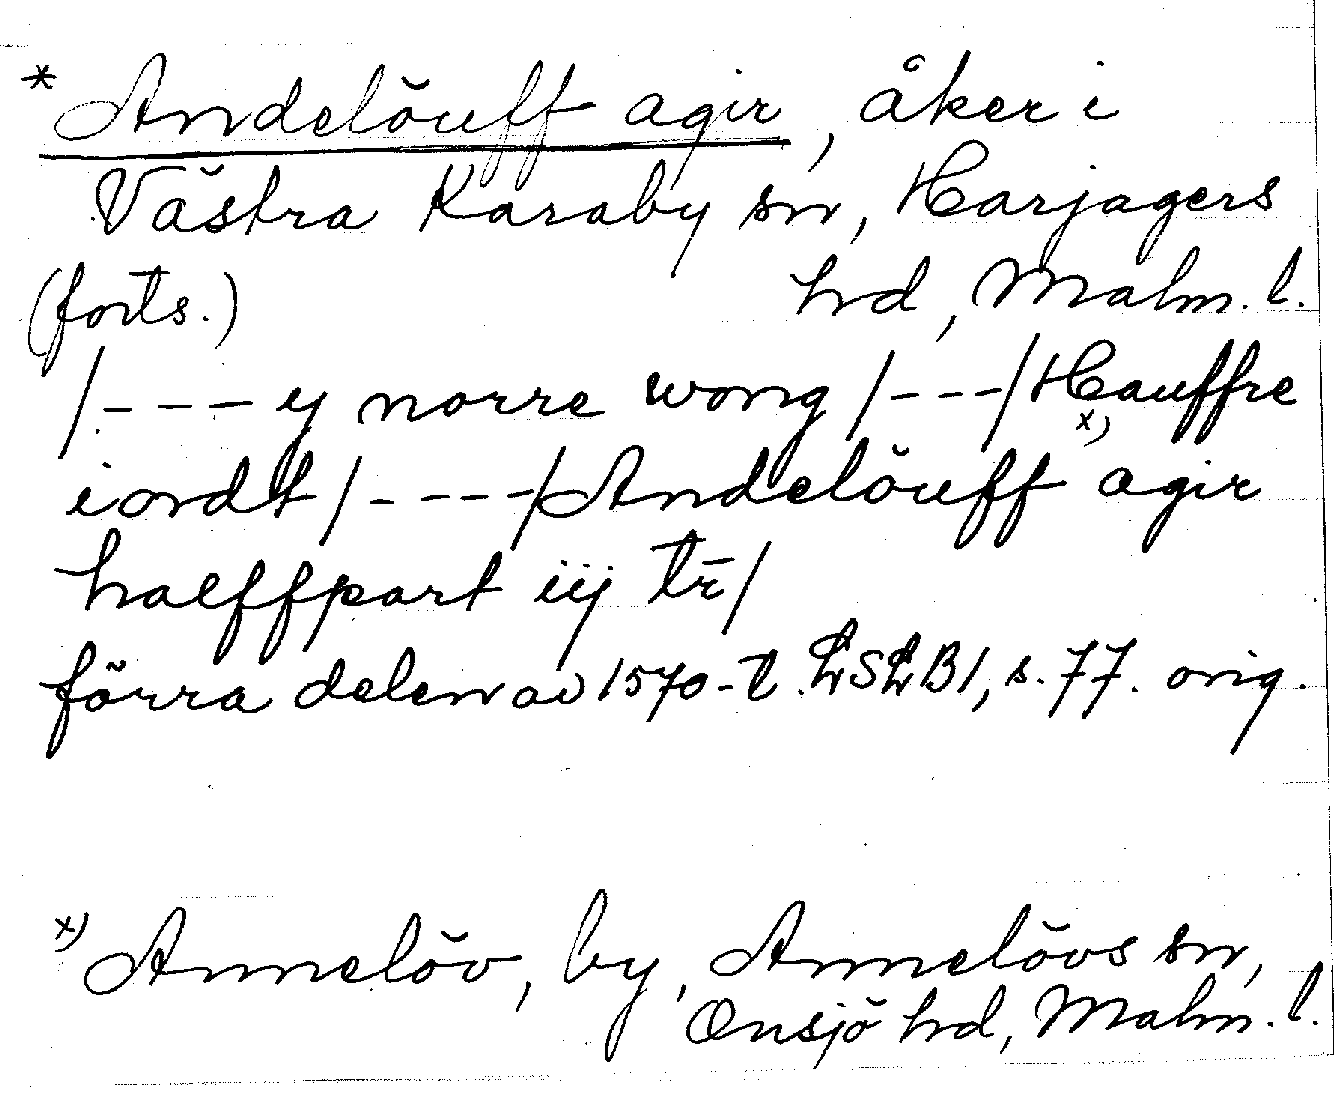 * Andelöuff agir, åker i
Västra Karaby sn, Harjagers
(forts.) hrd, Malm. l.
/- - - - y norre wong /- - -/ Hauffre
iordt /- - - -/ Andelöuff x) agir
halffpart iij tr̄/
förra delen av 1570-t. LSLB1, s. 77. orig.
x) Annelöv, by, Annelövs sn,
Onsjö hrd, Malm. l.